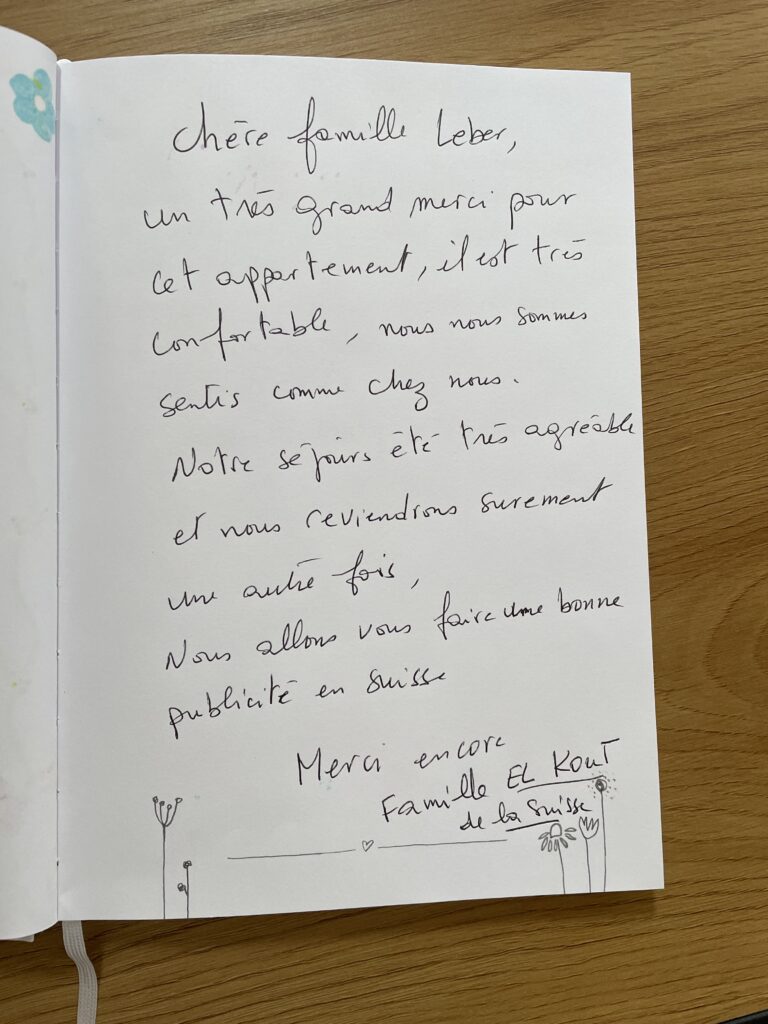 Chère famille Leber,
un très grand merci pour
cet appartement, il est très
confortable, nous nous sommes
sentis comme chez nous.
Notre séjours été très agréable
et nous reviendrons surement
une autre fois,
Nous allons vous faire une bonne
publicité en Suisse
Merci encore
Famille EL KOUT
de la Suisse